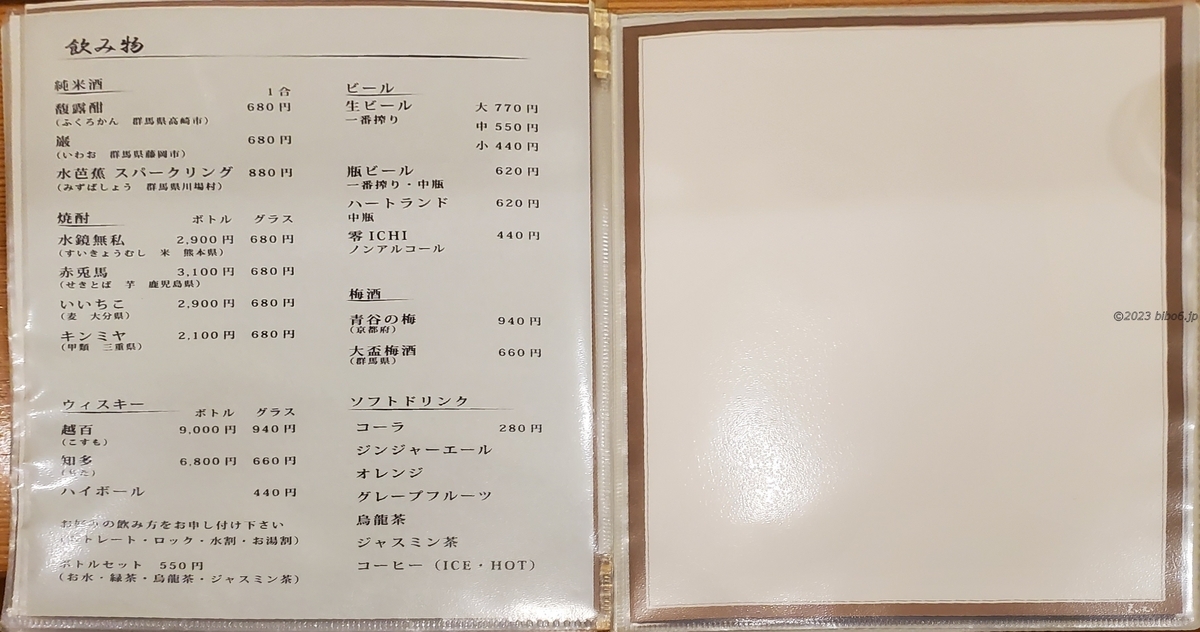 飲み物
純米酒 1合
馥露酣 680円
(ふくろかん 群馬県高崎市)
巌 680円
(いわお 群馬県藤岡市)
水芭蕉 スパークリング 880円
(みずばしょう 群馬県川場村)
焼酎 ボトル グラス
水鏡無私 2,900円 680円
(すいきょうむし 米 熊本県)
赤兎馬 3,100円 680円
(せきとば 芋 鹿児島県)
いいちこ 2,900円 680円
(麦 大分県)
キンミヤ 2,100円 680円
(甲類 三重県)
ウィスキー ボトル グラス
越百 9,000円 940円
(こすも)
知多 6,800円 660円
(ちた)
ハイボール 440円
お好みの飲み方をお申し付け下さい
(ストレート・ロック・水割・お湯割)
ボトルセット 550円
(お水・緑茶・烏龍茶・ジャスミン茶)
ビール
生ビール 大 770円
一番搾り 中 550円
小 440円
瓶ビール 620円
一番搾り・中瓶
ハートランド 620円
中瓶
零ICHI 440円
ノンアルコール
梅酒
青谷の梅 940円
(京都府)
大盃梅酒 660円
(群馬県)
ソフトドリンク
コーラ 280円
ジンジャーエール
オレンジ
グレープフルーツ
烏龍茶
ジャスミン茶
コーヒー(ICE・HOT)
©2023 bibo6.jp